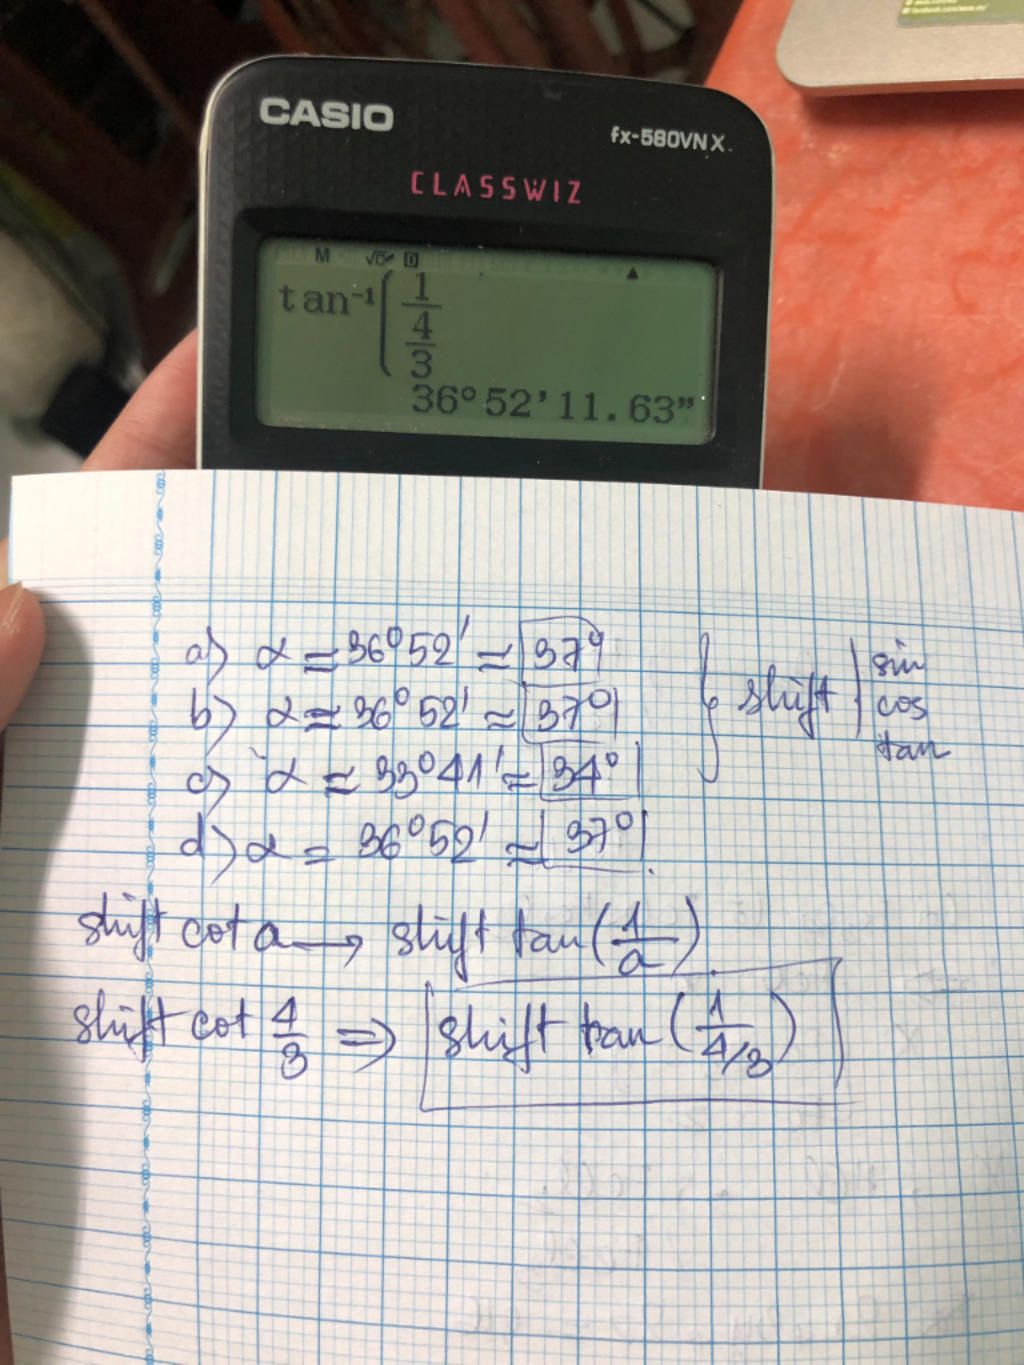 CASIO
fx-580VN X
CLASSWIZ
M √▱ D ▲
tan⁻¹(1/(4/3)
36°52'11.63"
a) α ≈ 36°52' ≈ 37°
b) α ≈ 36°52' ≈ 37°
c) α ≈ 33°41' ≈ 34°
d) α = 36°52' ≈ 37°.
} shift | sin
cos
tan
shift cot a → shift tan(1/a).
shift cot 4/3 ⇒ shift tan(1/4/3)